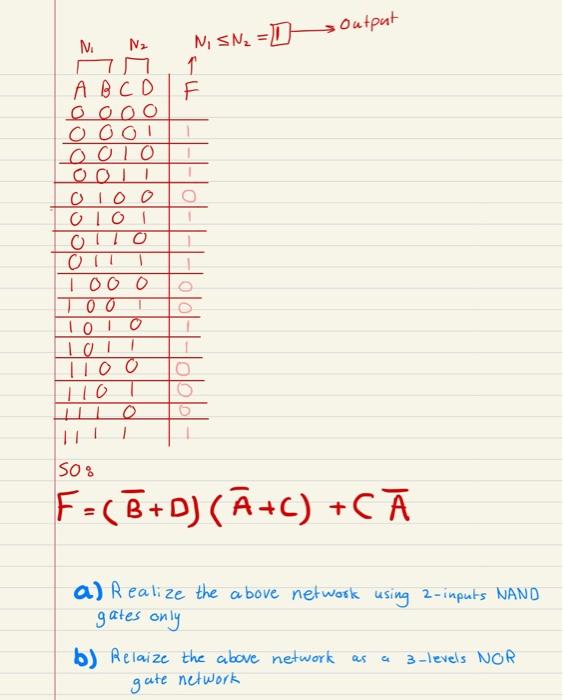 N₁ N₂ N₁ ≤ N₂ = 1 → Output
A B C D F
0 0 0 0
0 0 0 1 1
0 0 1 0 1
0 0 1 1 1
0 1 0 0 0
0 1 0 1 1
0 1 1 0 1
0 1 1 1 1
1 0 0 0 0
1 0 0 1 0
1 0 1 0 1
1 0 1 1 1
1 1 0 0 0
1 1 0 1 0
1 1 1 0 0
1 1 1 1 1
SO:
F = (B̅ + D) (A̅ + C) + C A̅
a) Realize the above network using 2-inputs NAND
gates only
b) Relaize the above network as a 3-levels NOR
gate network